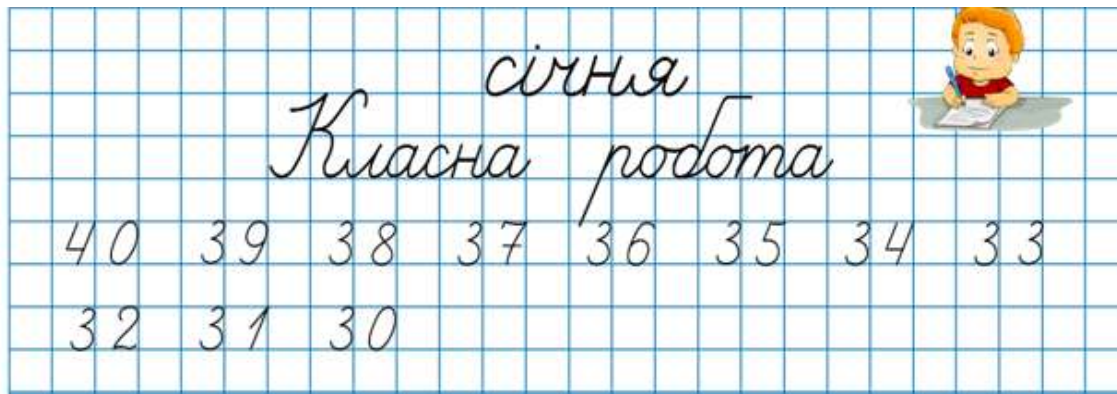 січня
Класна робота
40 39 38 37 36 35 34 33
32 31 30